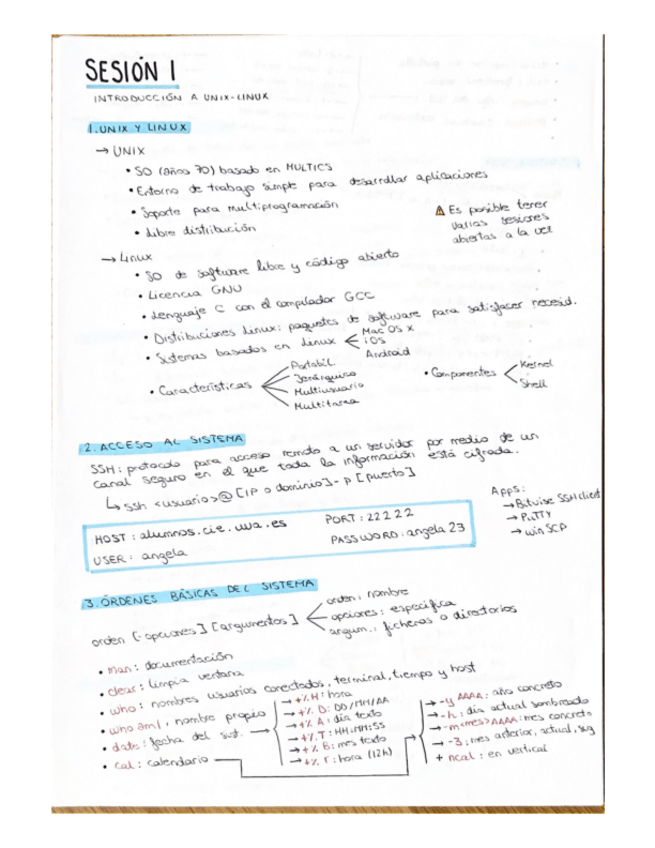 SESIÓN 1
INTRODUCCIÓN A UNIX-LINUX
1. UNIX Y LINUX
→ UNIX
• SO (años 70) basado en MULTICS
• Entorno de trabajo simple para desarrollar aplicaciones
• Soporte para multiprogramación
• Libre distribución
⚠ Es posible tener
varias sesiones
abiertas a la vez
→ Linux
• SO de software libre y código abierto
• Licencia GNU
• Lenguaje C con el compilador GCC
• Distribuciones Linux: paquetes de software para satisfacer necesid.
• Sistemas basados en Linux
Mac OS X
iOS
Android
• Características
Portabil.
Jerárquico
Multiusuario
Multitarea
• Componentes
Kernel
Shell
2. ACCESO AL SISTEMA
SSH: protocolo para acceso remoto a un servidor por medio de un
canal seguro en el que toda la información está cifrada.
↳ ssh <usuario>@[IP o dominio]-p [puerto]
HOST: alumnos.cie.uva.es PORT: 22222
USER: angela PASSWORD: angela23
Apps:
→ Bitvise SSH client
→ PuTTY
→ winSCP
3. ÓRDENES BÁSICAS DEL SISTEMA
orden [-opciones] [argumentos]
orden: nombre
opciones: especifica
argum.: ficheros o directorios
• man: documentación
• clear: limpia ventana
• who: nombres usuarios conectados, terminal, tiempo y host
• who am I: nombre propio
• date: fecha del sist. →
→ +%H: hora
→ +%D: DD/MM/AA
→ +%A: día texto
→ +%T: HH:MM:SS
→ +%B: mes texto
→ +%r: hora (12h)
• cal: calendario
→ -y AAAA: año concreto
→ -h: día actual sombreado
→ -m<mes>AAAA: mes concreto
→ -3: mes anterior, actual, sig
+ ncal: en vertical